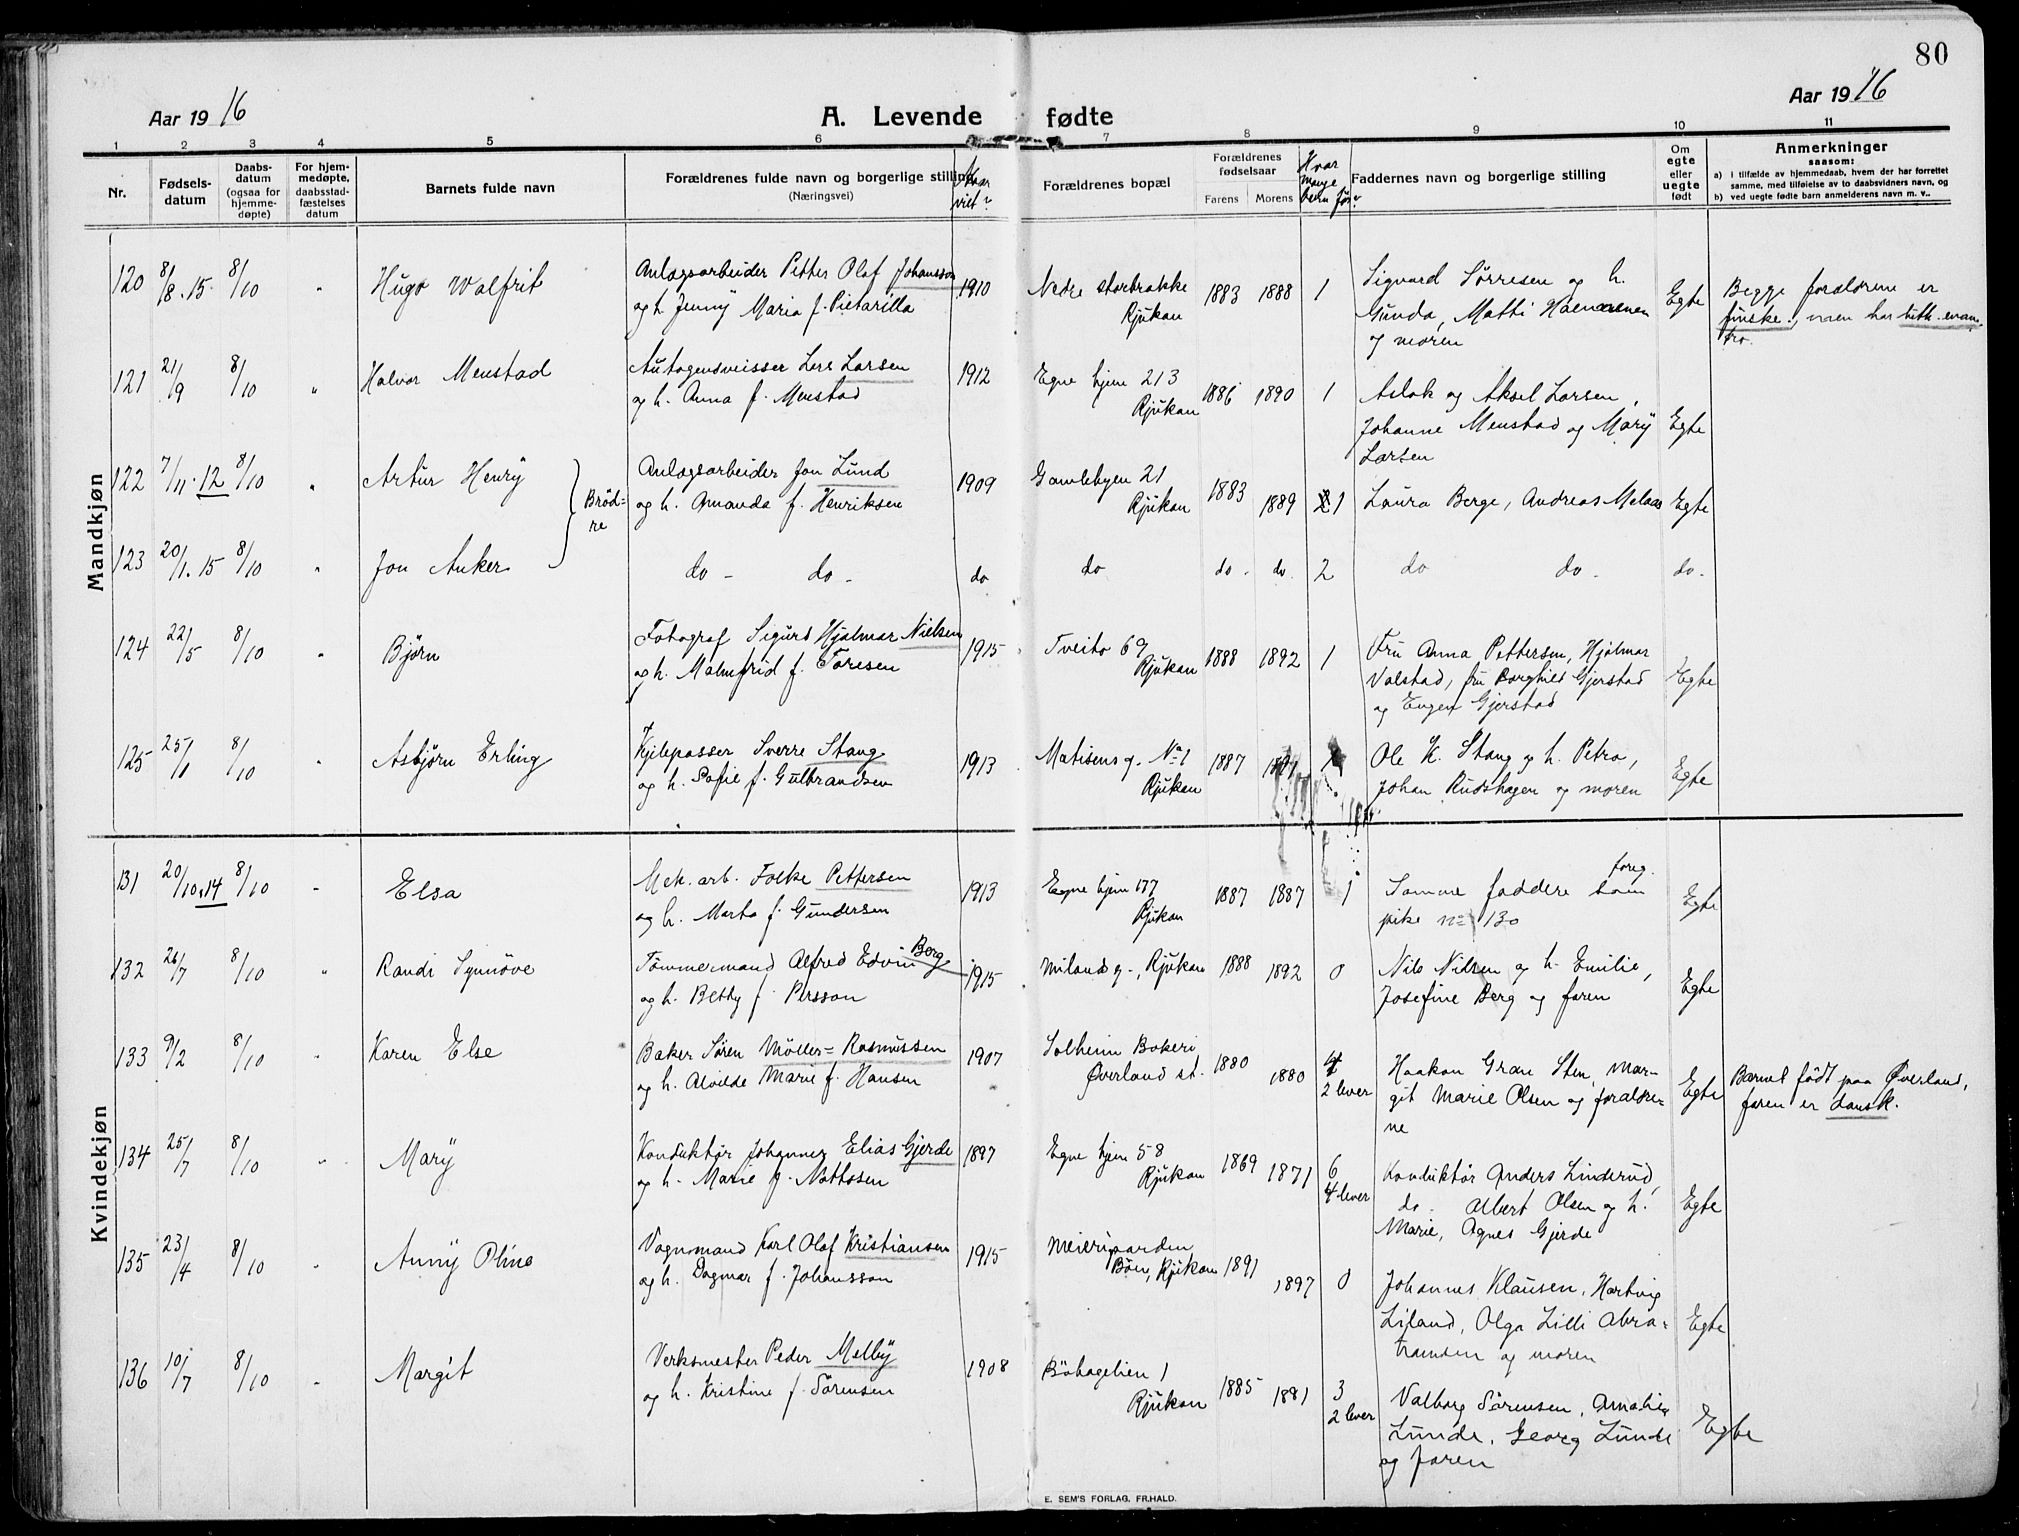 80
Aar 19 16
A. Levende fødte
Aar 19 16
1 2 3 4 5 6 7 8 9 10 11
Nr.
Fødsels-
datum
Daabs-
datum
(ogsaa for
hjemme-
døpte)
For hjem-
medøpte,
daabsstad-
fæstelses
datum
Barnets fulde navn
Forældrenes fulde navn og borgerlige stilling
(Næringsvei)
Naar
viet?
Forældrenes bopæl
Forældrenes
fødselsaar
Farens Morens
Hvor
mange
barn før?
Faddernes navn og borgerlige stilling
Om
egte
eller
uegte
født
Anmerkninger
saasom:
a) i tilfælde av hjemmedaab, hvem der har forrettet
samme, med tilføielse av to daabsvidners navn, og
b) ved uegte fødte barn anmelderens navn m. v..
Mandkjøn
120 8/8.15 8/10 " Hugo Walfrit
Anlægsarbeider Petter Olaf Johansson
og h. Jenny Maria f. Pietarilla
1910
Nedre storbrakke
Rjukan
1883 1888 1
Sigvard Sørresen og h.
Gunda, Matti
og moren
Egte
Begge forældrene er
finske, men har luth. evan.
tro.
121 21/9 8/10 " Halvor Menstad
Autogensveisser Lars Larsen
og h. Anna f. Menstad
1912
Egne hjem 213
Rjukan
1886 1890 1
Aslak og Aksel Larsen,
Johanne Menstad og Mary
Larsen
Egte
122 7/11.12 8/10 " Artur Henry
Brød=
re
Anlægsarbeider Jon Lund
og h. Amanda f. Henriksen
1909
Gamlebyen 21
Rjukan
1883 1889 1
Laura Berge, Andreas Melaas
Egte
123 20/1.15 8/10 " Jon Anker
do - do -
do
do
do - do. 2
do do -
do -
124 22/5 8/10 " Bjørn
Fotograf Sigurd Hjalmar Nielsen
og h. Malmfrid f. Toresen
1915
Tveito 69
Rjukan
1888 1892 1
Fru Anna Pettersen, Hjalmar
Valstad, fru Borghild Gjerstad
og Eugen Gjerstad
Egte
125 25/1 8/10 " Asbjørn Erling
Kjelepasser Sverre Stang
og h. Sofie f. Gulbrandsen
1913
Matisens g. No 1
Rjukan
1887
Ole K. Stang og h. Petra,
Johan Rudshagen og moren
Egte
Kvindekjøn
131 20/10.14 8/10 " Elsa
Mek. arb. Folke Pettersen
og h. Marta f. Gundersen
1913
Egne hjem 177
Rjukan
1887 1887 1
foreg.
Samme faddere som
pike no 130
Egte
132 26/7 8/10 " Randi Synnöve
Tömmermand Alfred Edvin Berg
og h. Betty f. Persson
1915
Milands g., Rjukan
1888 1892 0
Nils Nilsen og h. Emilie,
Josefine Berg og faren
Egte
133 9/2 8/10 " Karen Else
Baker Søren Møller= Rasmussen
og h. Alvilde Marie f. Hansen
1907
Solheim Bakeri
Øverland st.
1880 1880 4
2 lever
Haakon Gran Sten, Mar-
git Marie Olsen og forældre-
ne
Egte
Barnet født paa Øverland,
faren er dansk.
134 25/7 8/10 " Mary
Konduktør Johannes Elias Gjerde
og h. Marie f. Nottosen
1897
Egne hjem 58
Rjukan
1869 1871 6
4 lever
Konduktør Anders Linderud,
do - Albert Olsen og h.
Marie, Agnes Gjerde
Egte
135 23/4 8/10 " Anny Oline
Vognmand Karl Olaf Kristiansen
og h. Dagmar f. Johansson
1915
Meierigaarden
Böen, Rjukan
1891 1897 0
Johannes Klausen, Hartvig
Liland, Olga Lilli Abra=
og moren
Egte
136 10/7 8/10 " Margit
Verksmester Peder Melby
og h. Kristine f. Sørensen
1908
Böhagelien 1
Rjukan
1885 1881 3
2 lever
Valborg Sørensen, Amalie
Lunde, Georg Lunde
og faren
Egte
E. SEM'S FORLAG, FR.HALD.